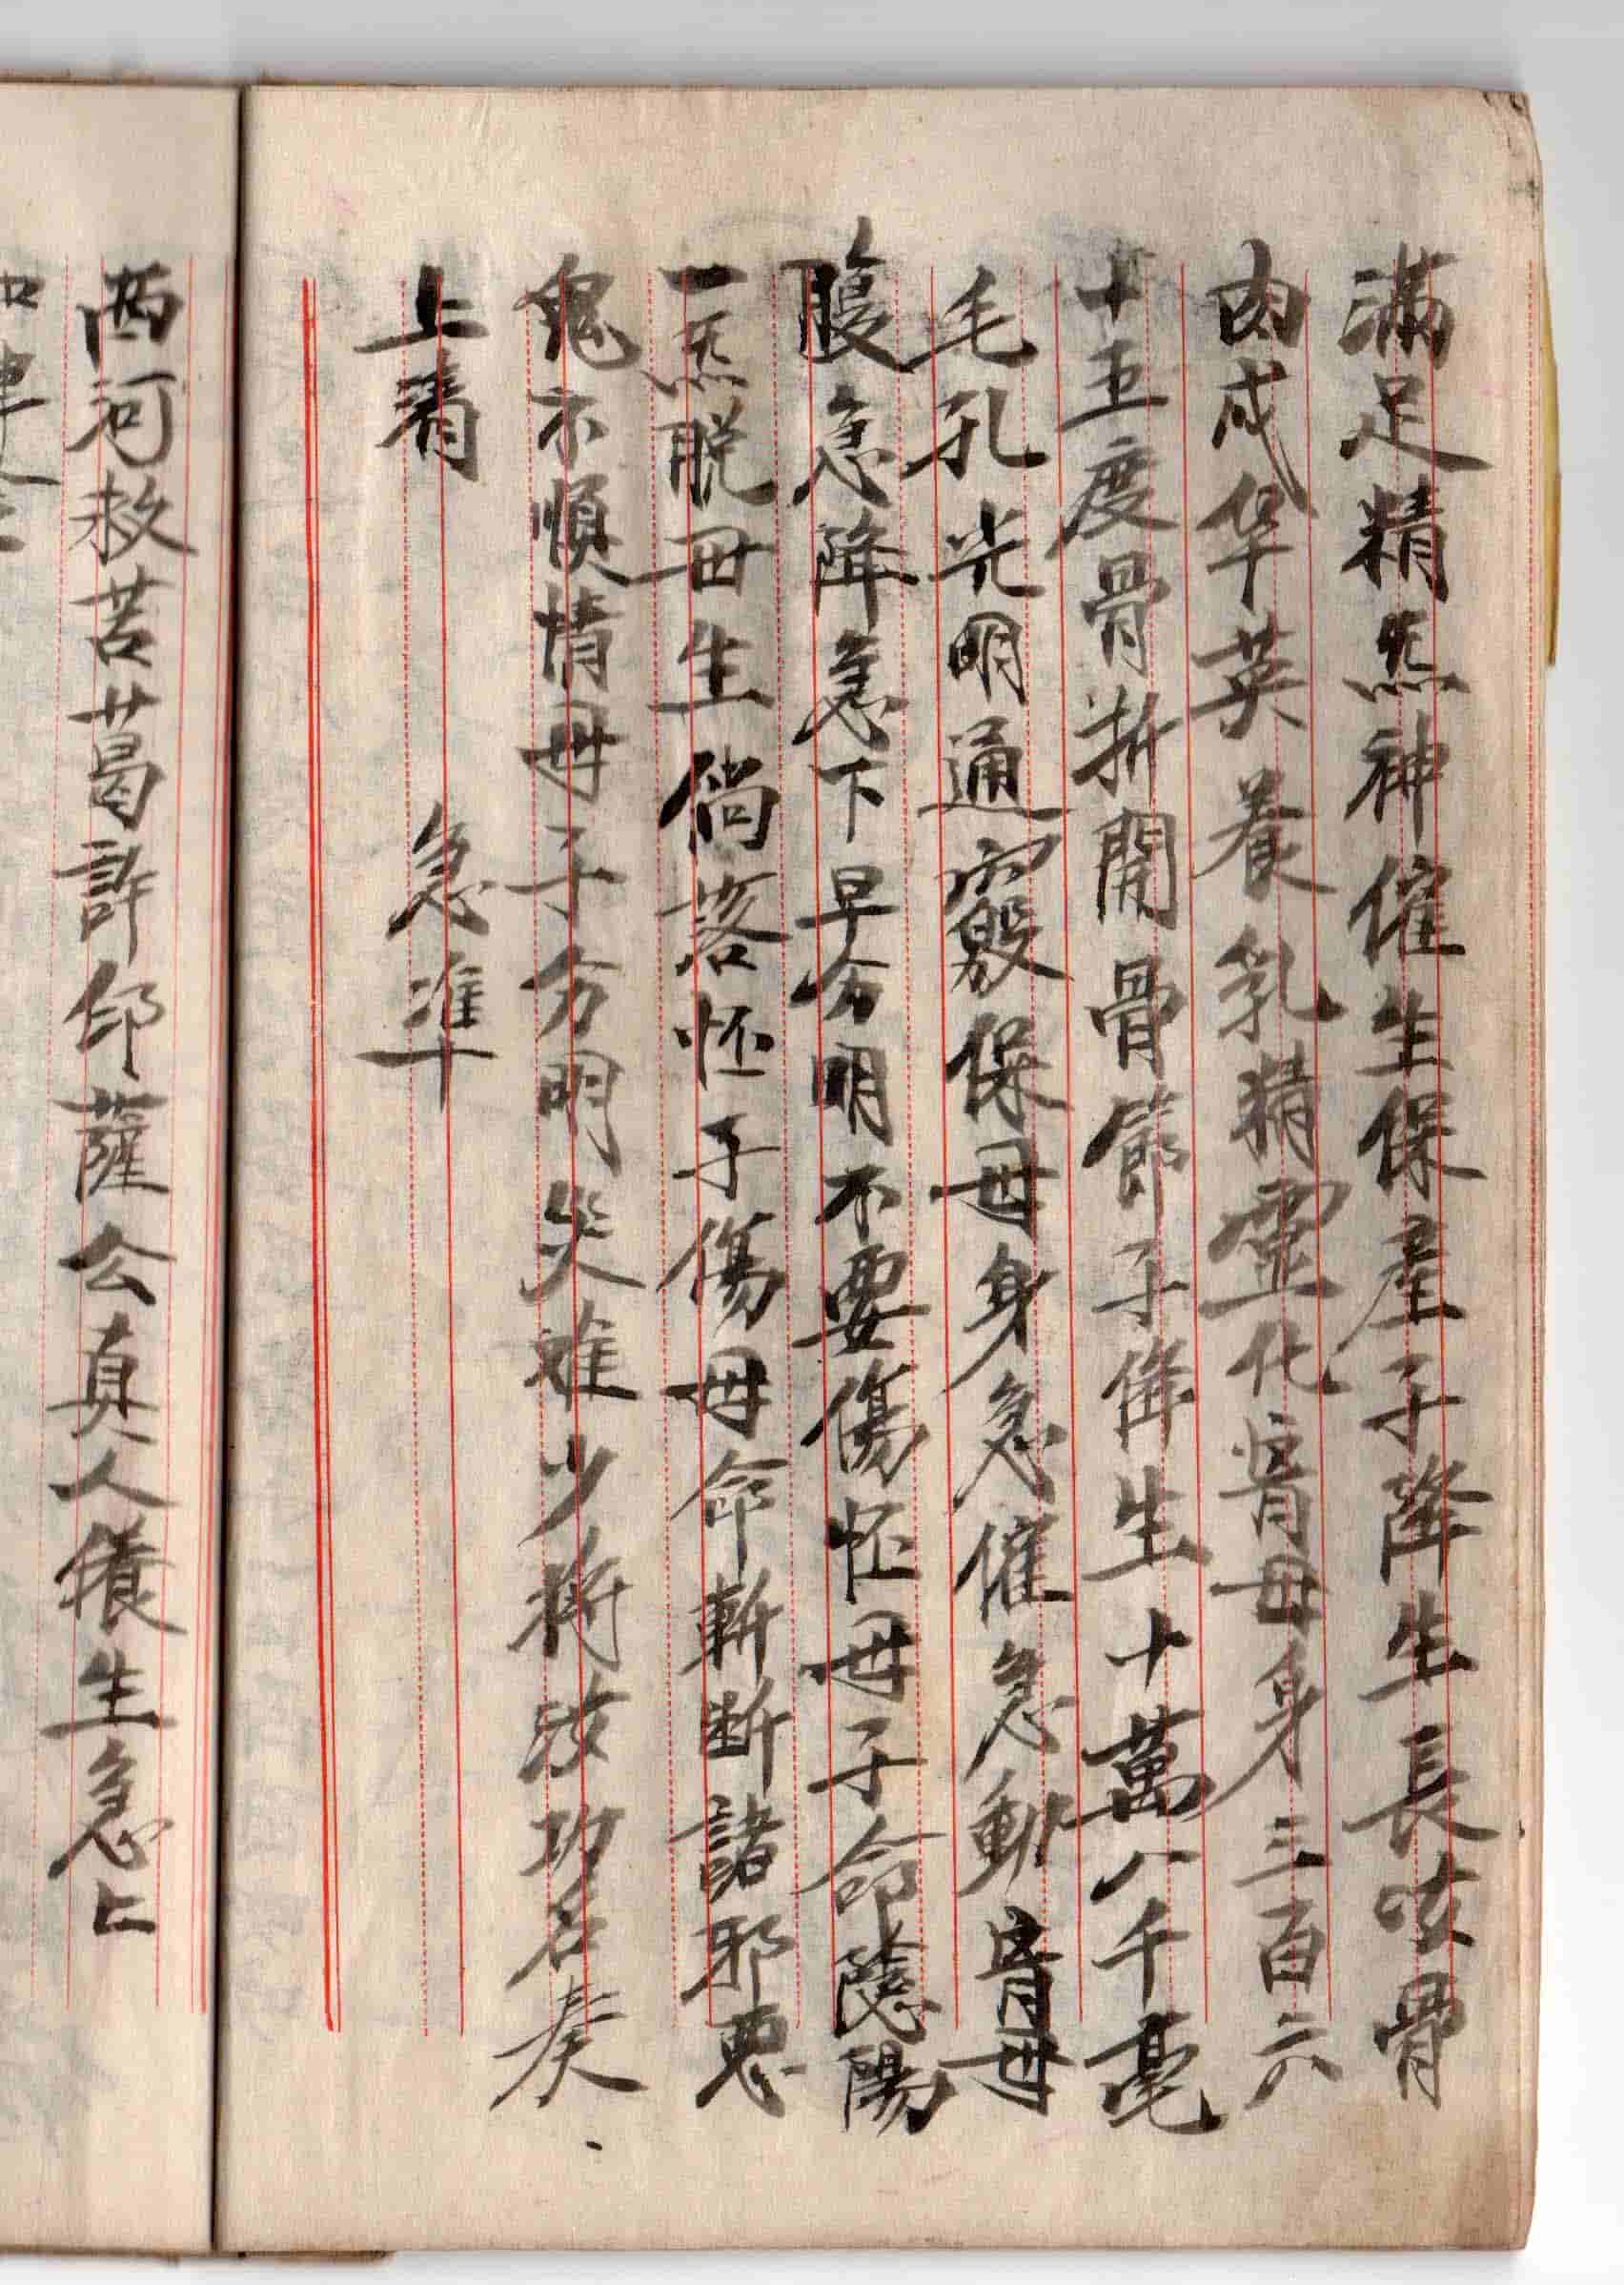 滿足精炁神催生保產子降生長咳骨
肉成华英養乳精靈化育母身三百六
十五度骨折開骨節子降生十萬八千毫
毛孔光明通竅保母身急催急動育母
腹急降急下早分明不要傷怀母子命陰陽
一炁脱毋生倘落怀子傷母命斬断諸邪惡
鬼不順情母子分明災难少将汝功名奏
上清 急準
西河救苦葛許邱薩公真人催生急上